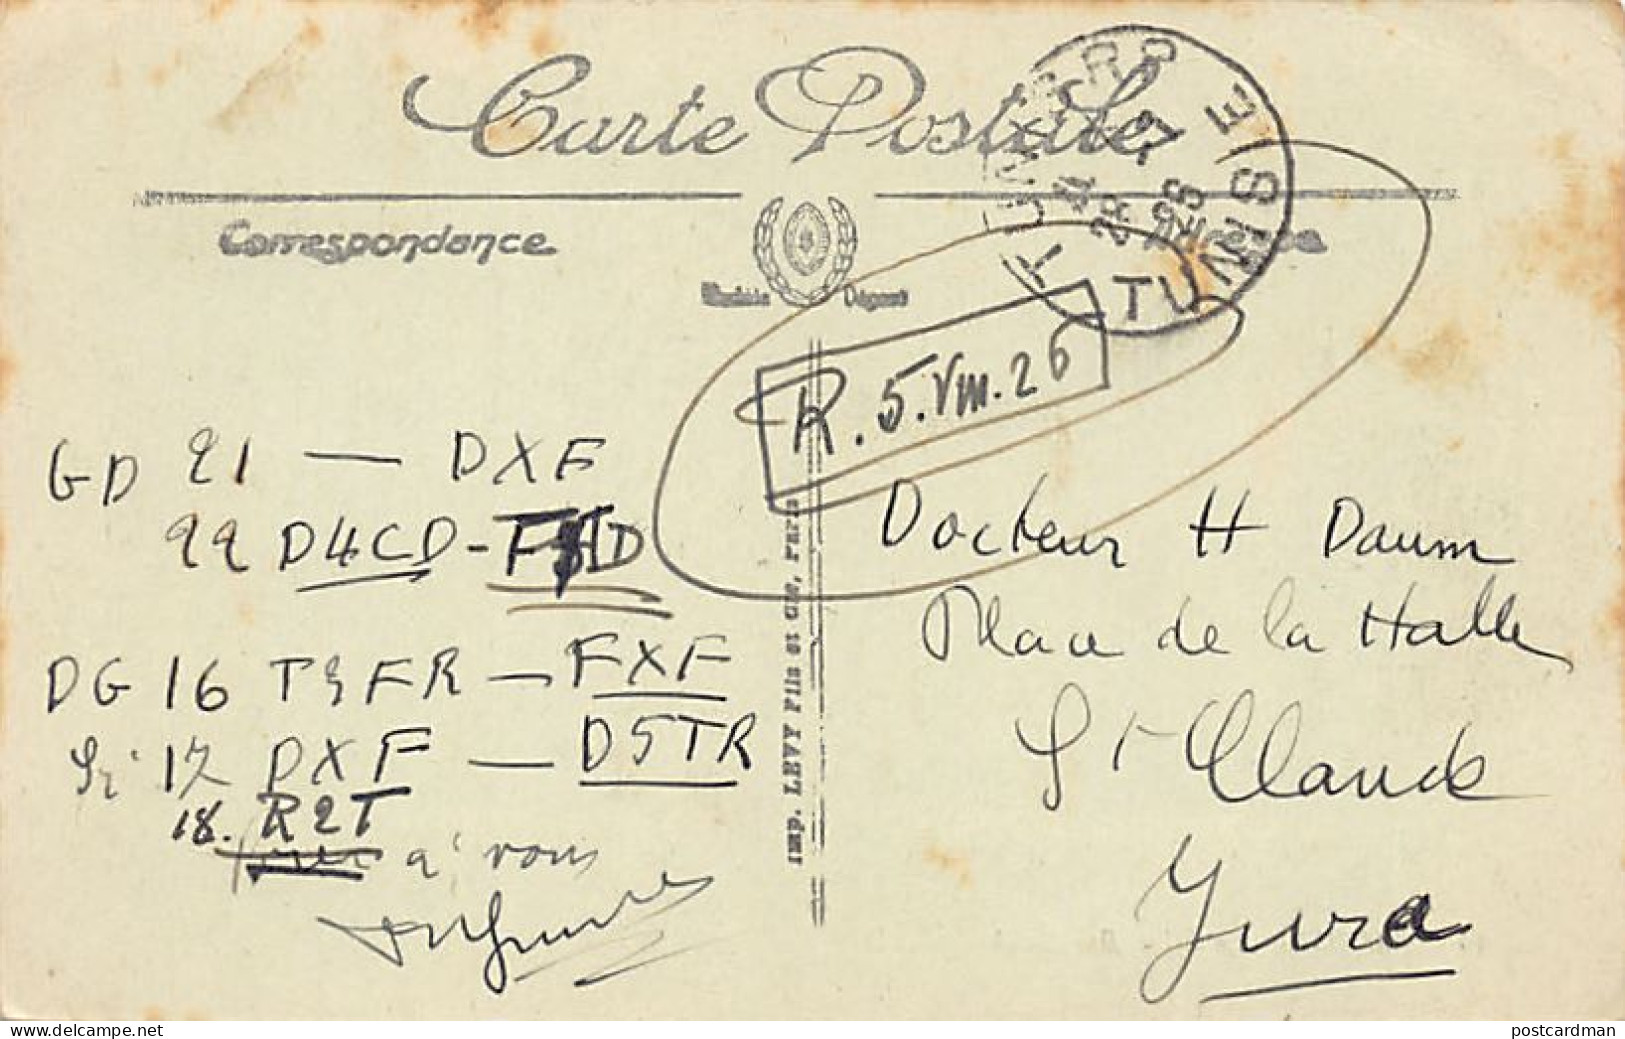 Carte Postale
Correspondance
TUNIS
TUNISIE
28 -7
26
R. 5. VIII. 26
GD 21 — DXF
22 D4CD -
DG 16 T5FR — FXF
17 DXF — D5TR
18. R2T
à vous
Docteur H Daum
Place de la Halle
St Claude
Jura
Imp. LEVY Fils et Cie, Paris
www.delcampe.net
postcardman